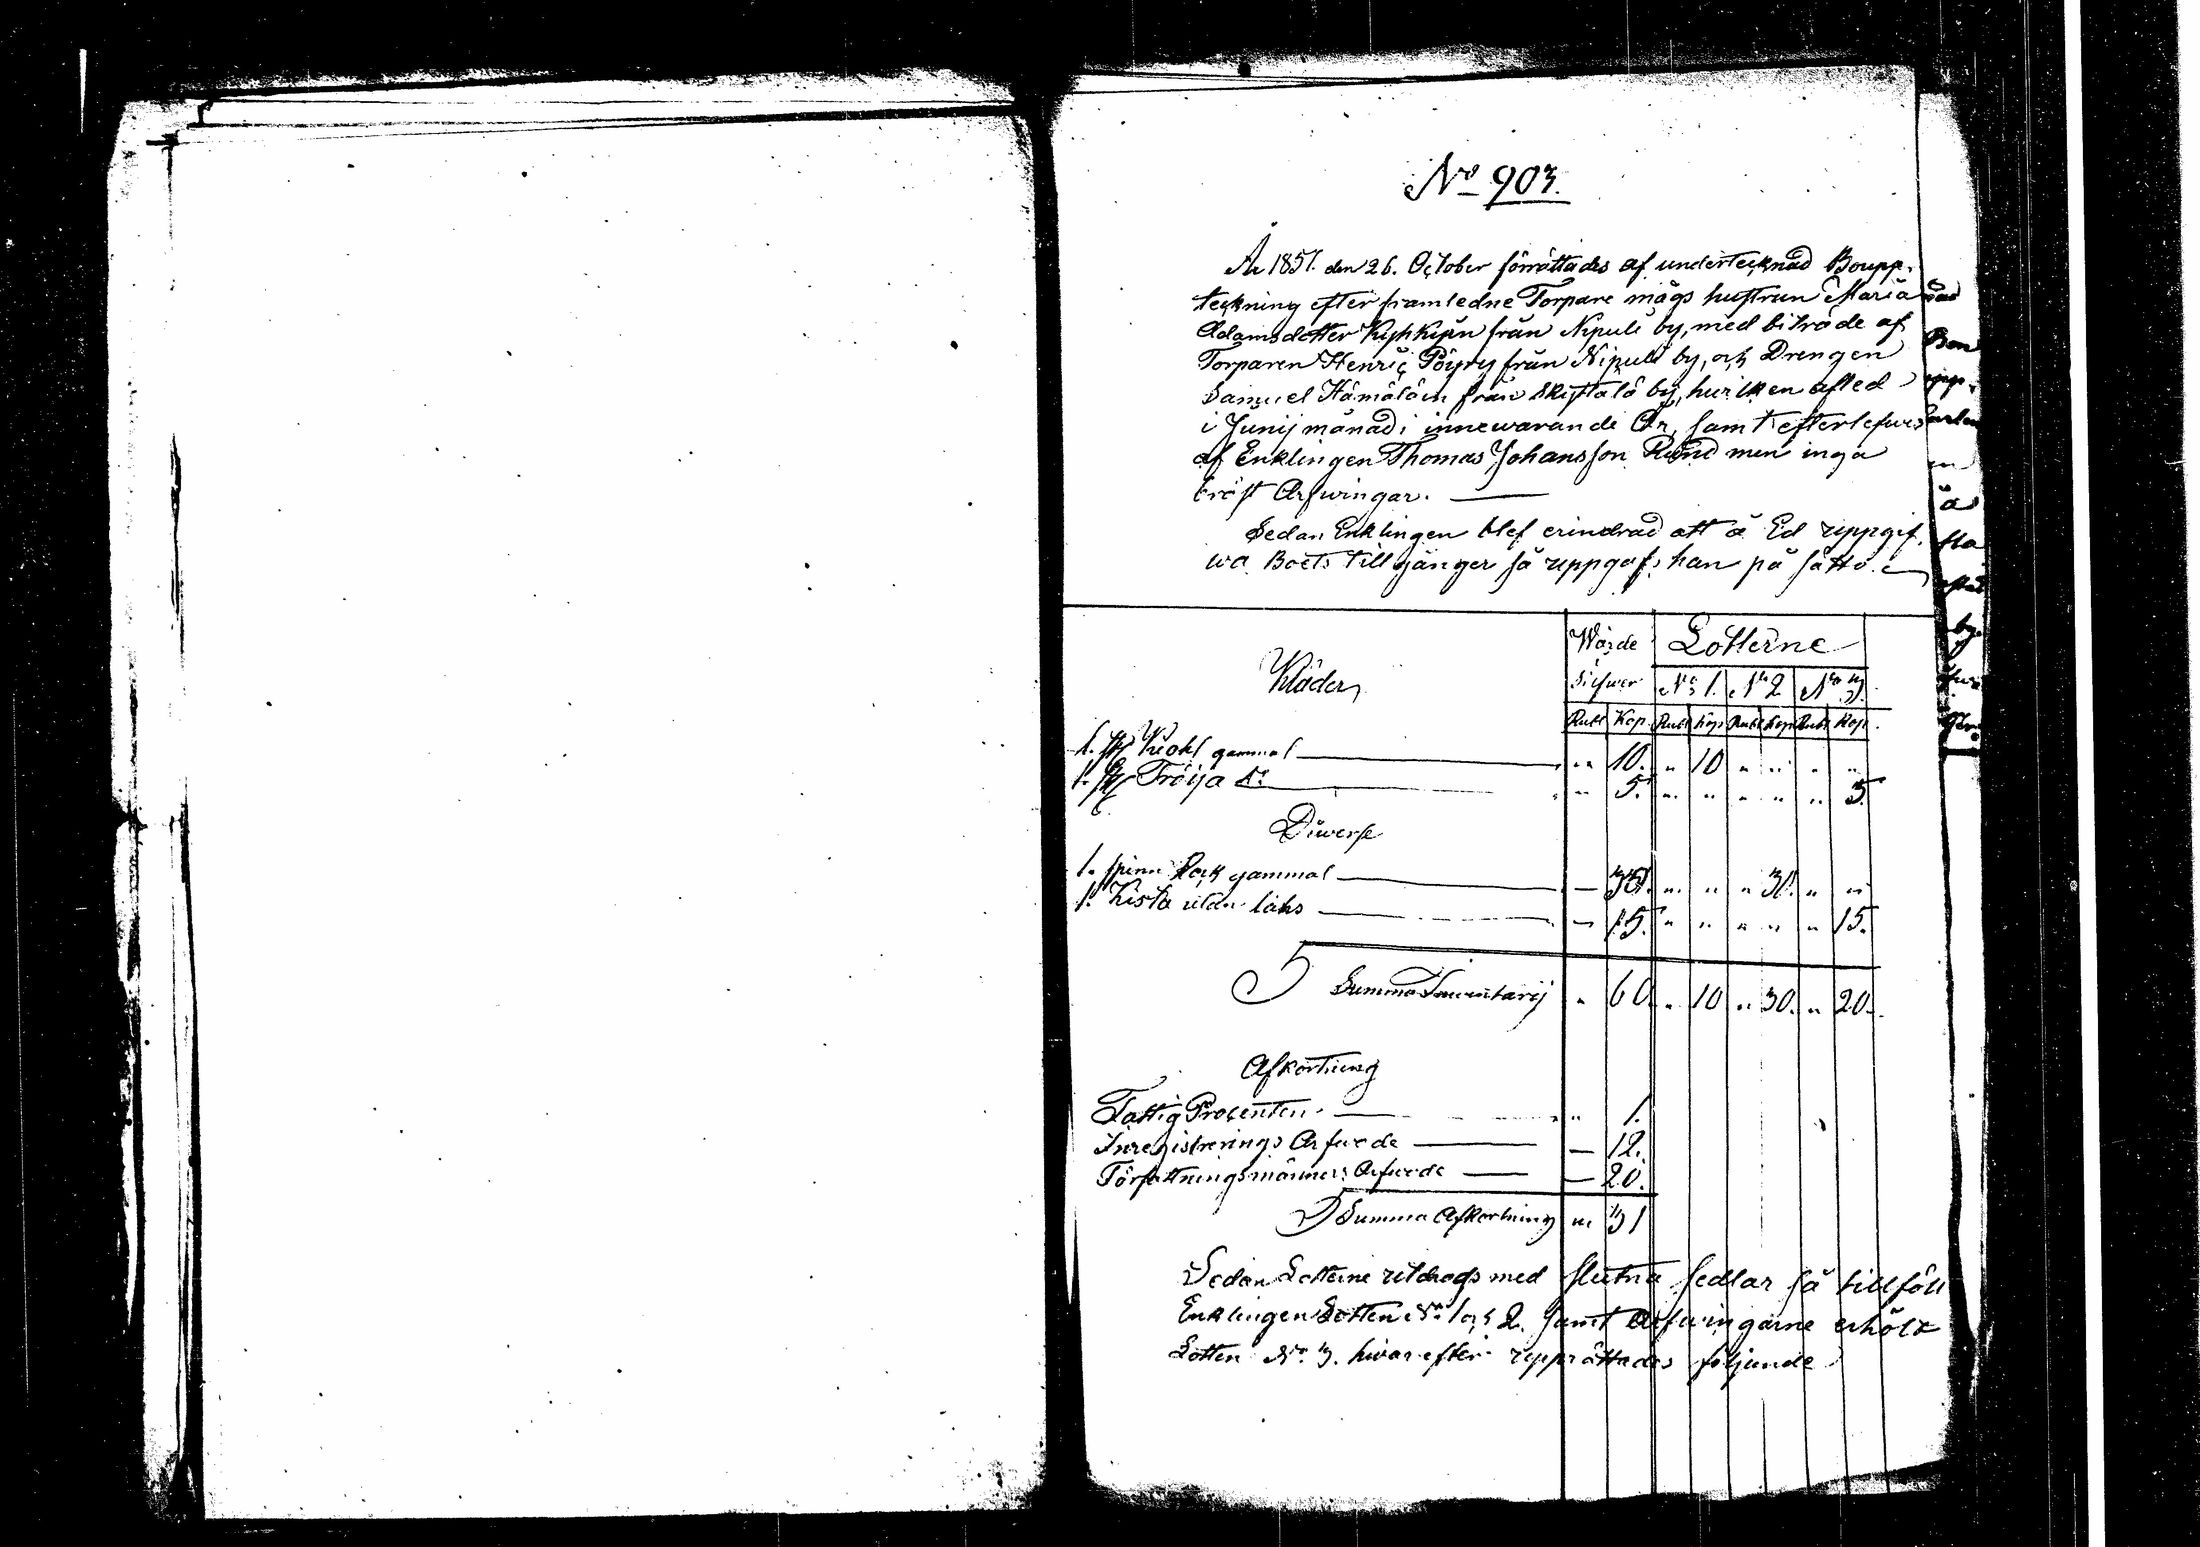 No 903.
År 1851. den 26. October förrättades af undertecknad Boupp-
teckning efter framledne Torpare mågs hustrun Maria
Adamsdotter Kyhkyin från Nipuli by, med biträde af
Torparen Henric Pöyry från Nipuli by, och Drengen
Samuel Hämäläin från by, hvilken afled
i Junij månad i innewarande År, samt efterlefwes
af Enklingen Thomas Johansson Rund men inga
bröst Arfwingar. —
Sedan Enklingen blef erindrad att å Ed uppgif-
wa Boets tillgånger så uppgaf han på sätto.
Kläder Wärde Silfwer Lotterne
No 1. No 2 No 3.
Rubl Kop. Rubl kop Rubl kop Rubl Kop.
1. st Kiohl gammal — " 10. " 10 " " " "
1. st Tröija do — " 5. " " " " " 5.
Diverse
1. spinn Rock gammal — 30. " " " 30. " "
1. Kista utan låhs — 15. " " " " " 15.
Summa Inventarij " 60. " 10 " 30. " 20.
Afkortning
Fattig Procenten — " 1.
Inregistrerings Arfwode — 12.
Författningsmännens Arfwode — 20.
Summa Afkortning " 31
Sedan Lotterne utdrogs med slutna sedlar så tillföll
Enklingen Lotten No 1 och 2. samt Arfwingarne erhölt
Lotten No 3. hwarefter upprättades följande